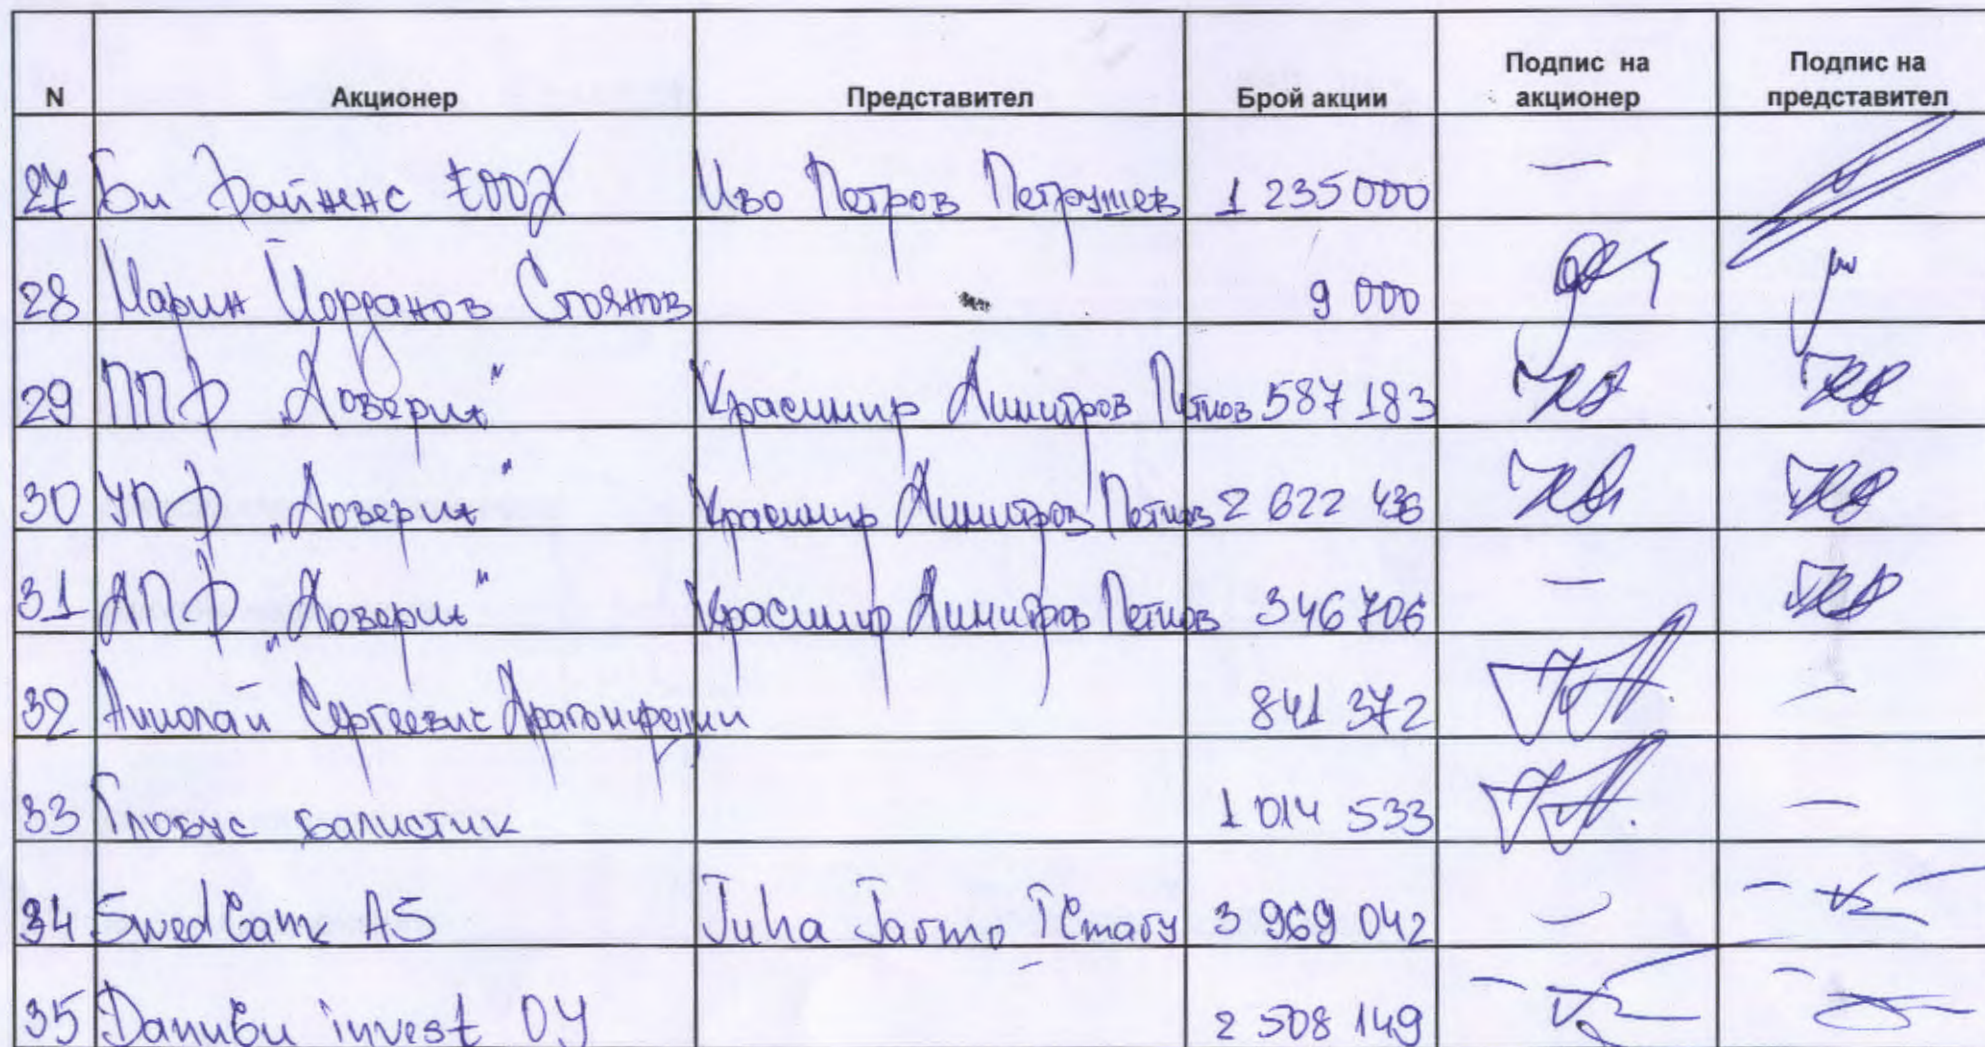 N Акционер Представител Брой акции Подпис на акционер Подпис на представител
27 Би Файненс ЕООД Иво Петров Петрушев 1 235 000 —
28 Марин Йорданов Стоянов 9 000
29 ППФ „Доверие" Красимир Димитров Петков 587 183
30 УПФ „Доверие" Красимир Димитров Петков 2 622 436
31 ДПФ „Доверие" Красимир Димитров Петков 346 706 —
32 Николай Сергеевич 841 372 —
33 Глобус балистик 1 014 533 —
34 Swedbank AS Juha Jarmo 3 969 042 —
35 Danube invest OY 2 508 149